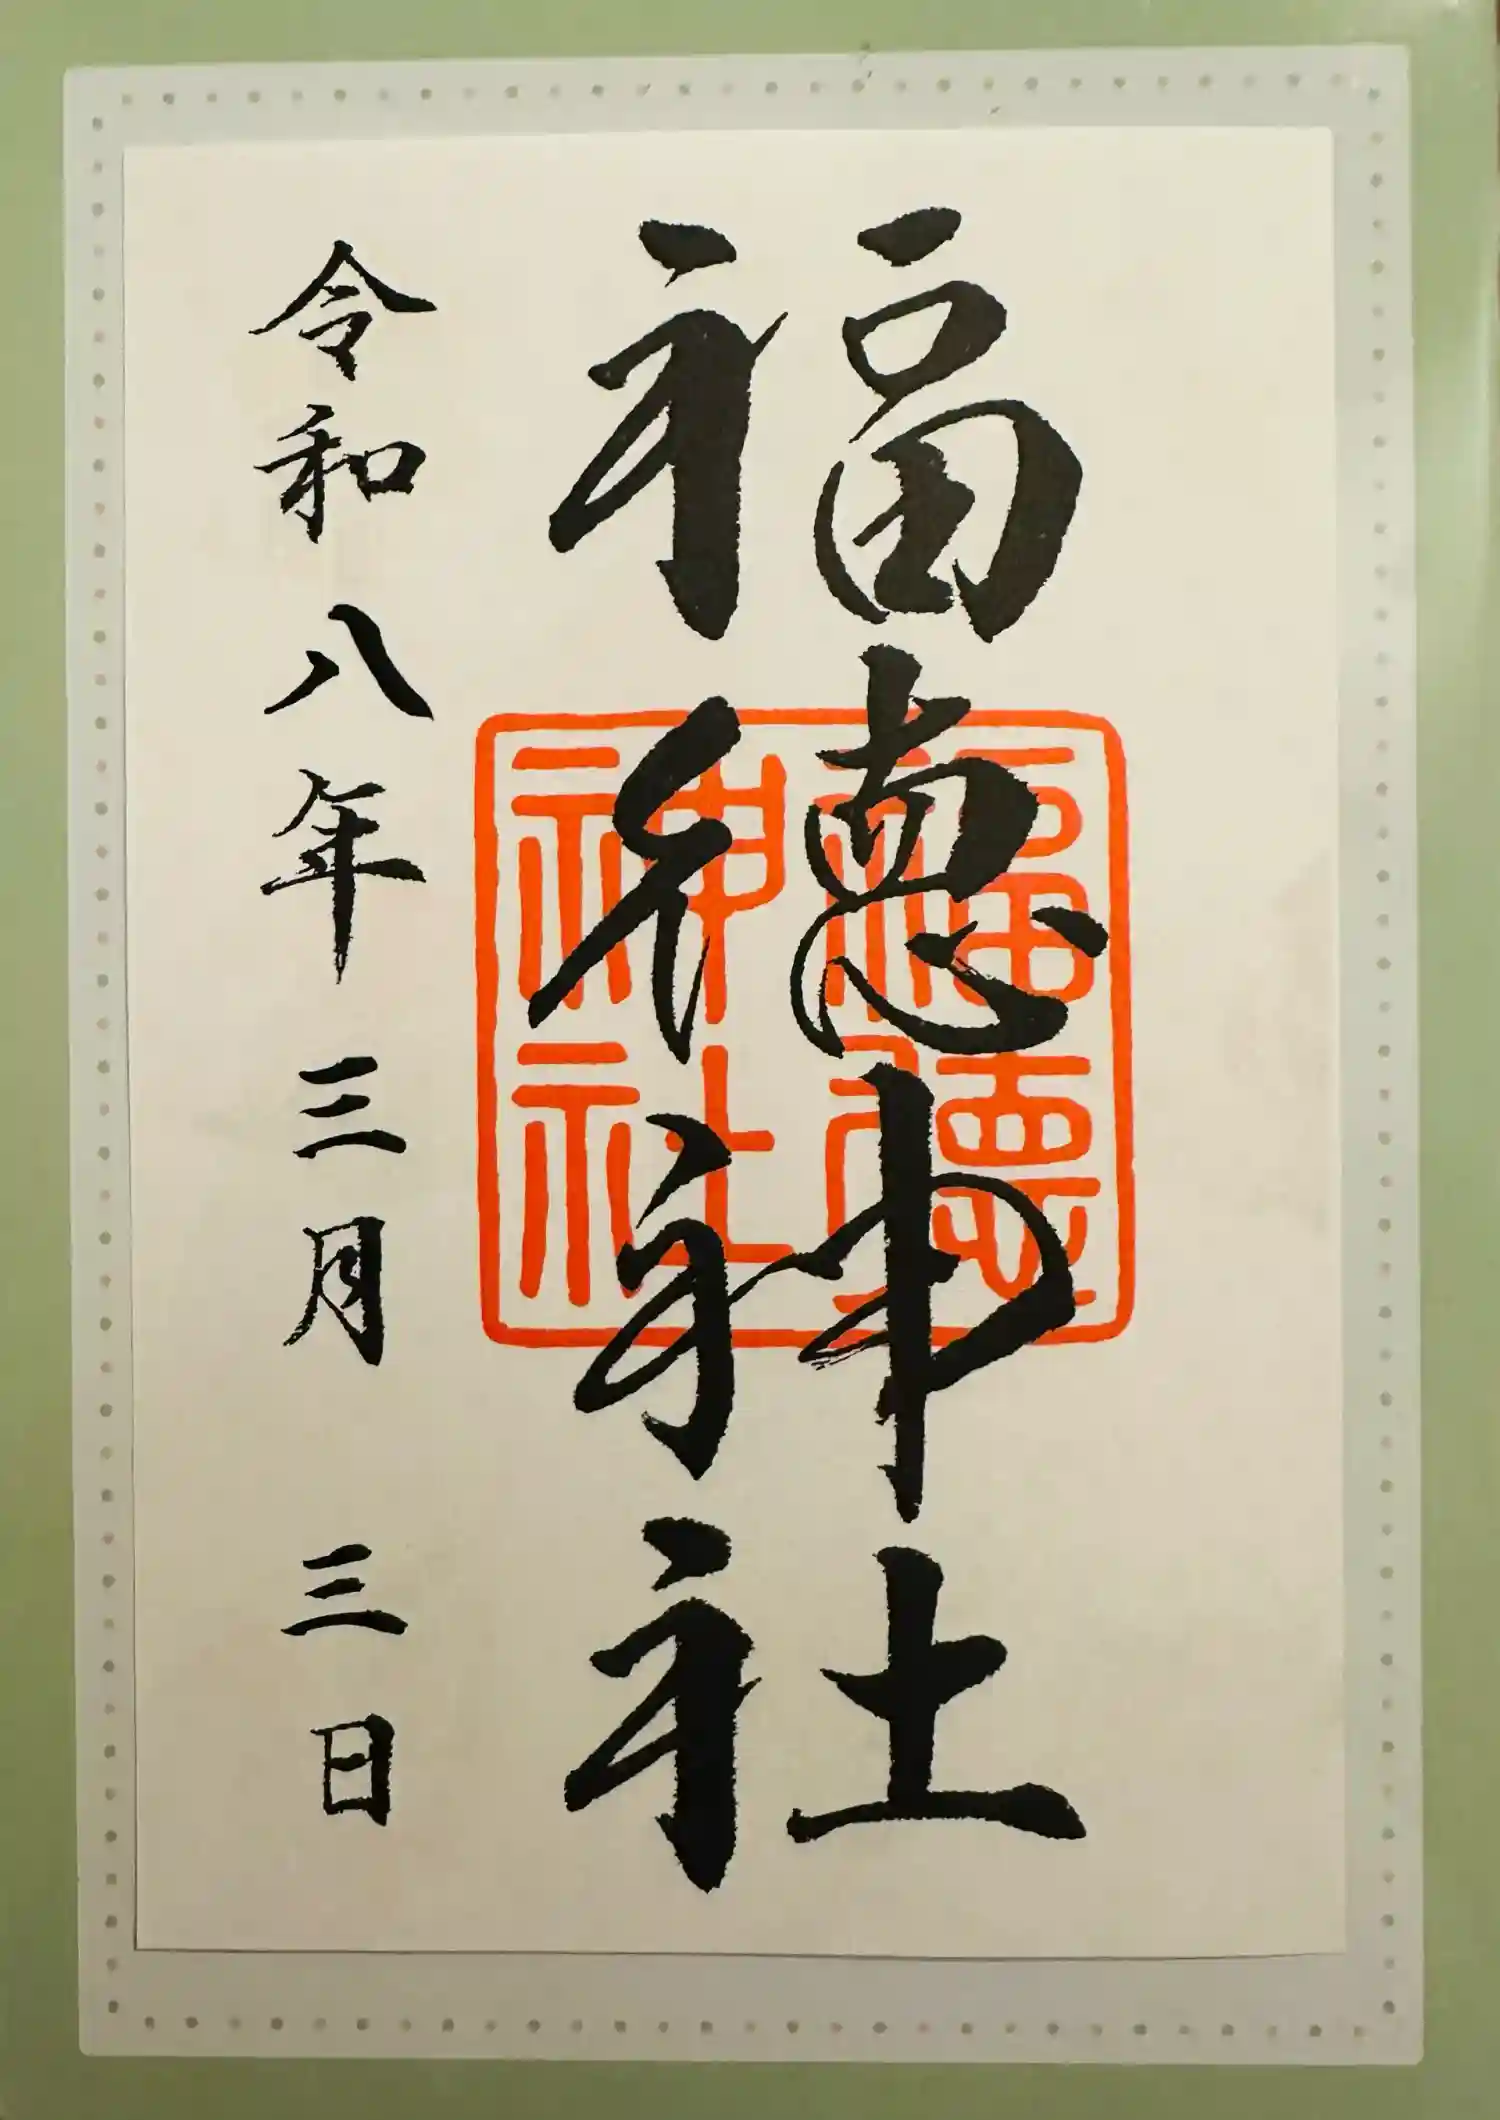 福德神社
令和八年三月三日
福德
神社